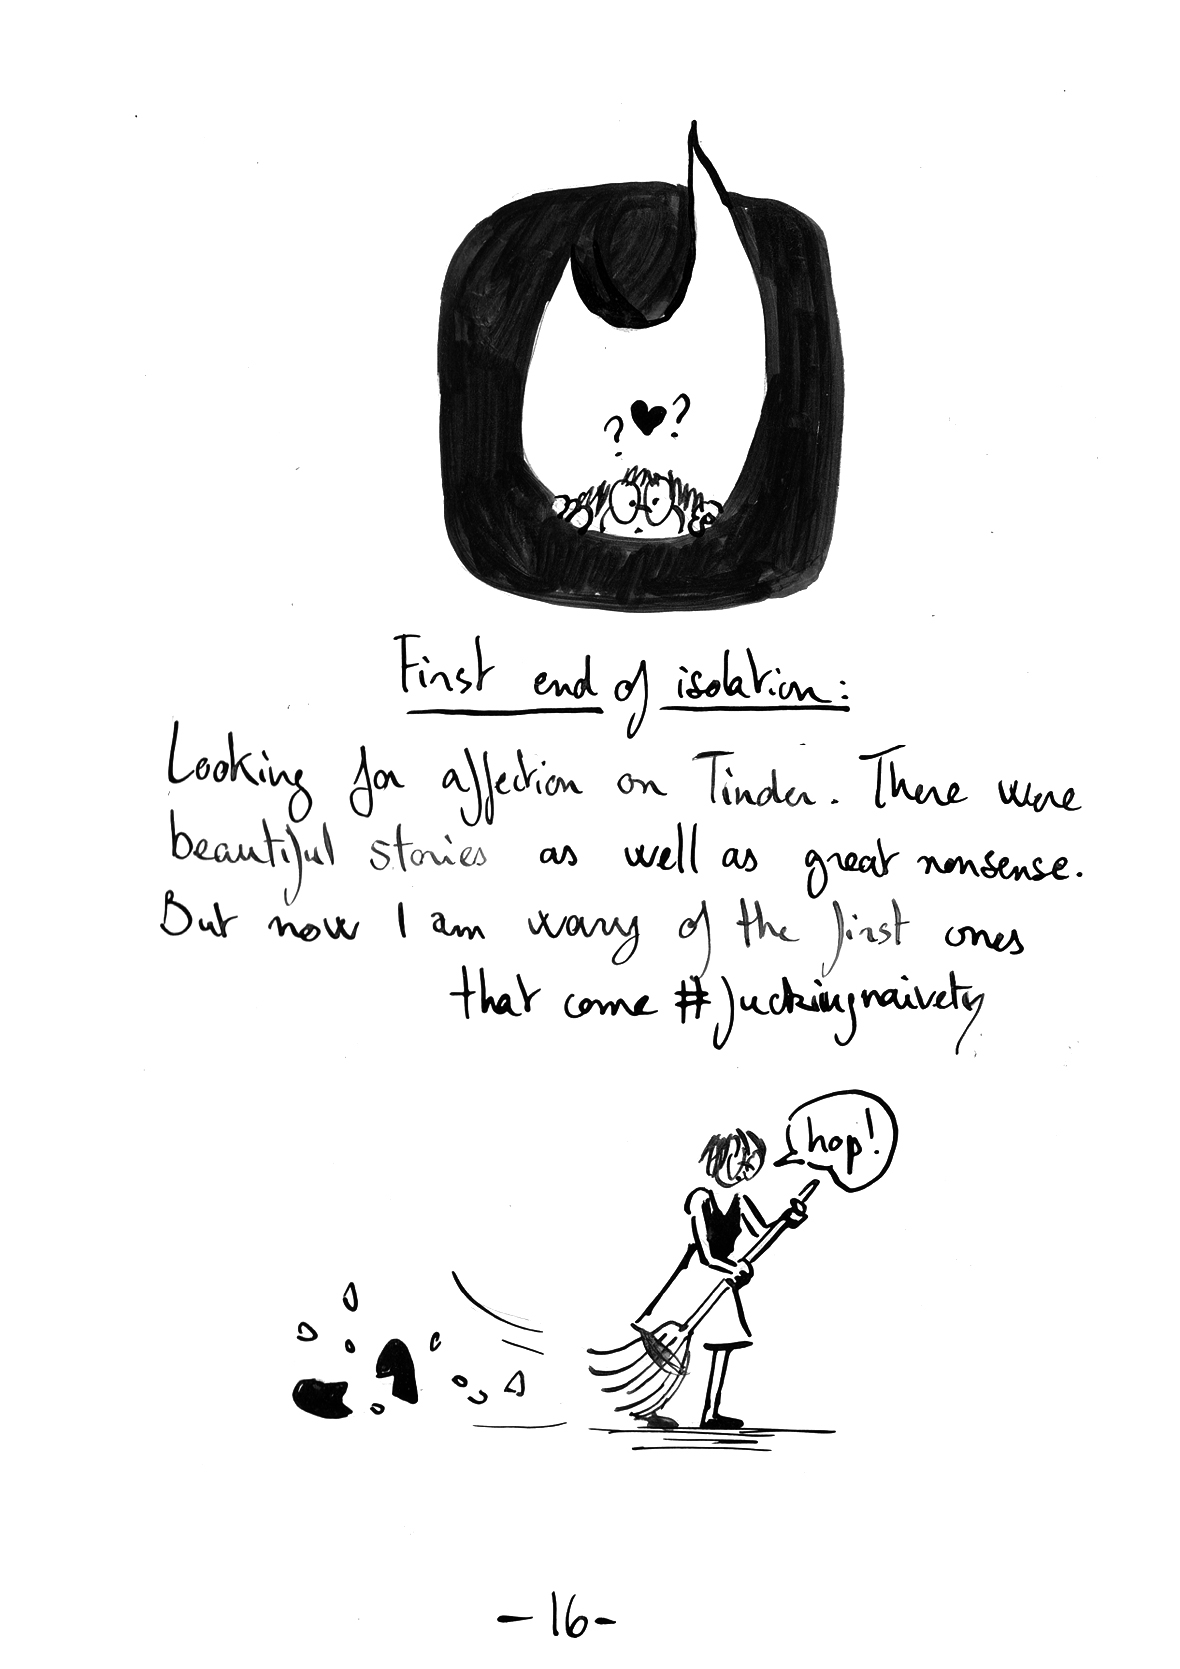 ? ♥ ?
First end of isolation:
Looking for affection on Tinder. There were
beautiful stories as well as great nonsense.
But now I am wary of the first ones
that come #fuckingnaivety
hop!
- 16 -